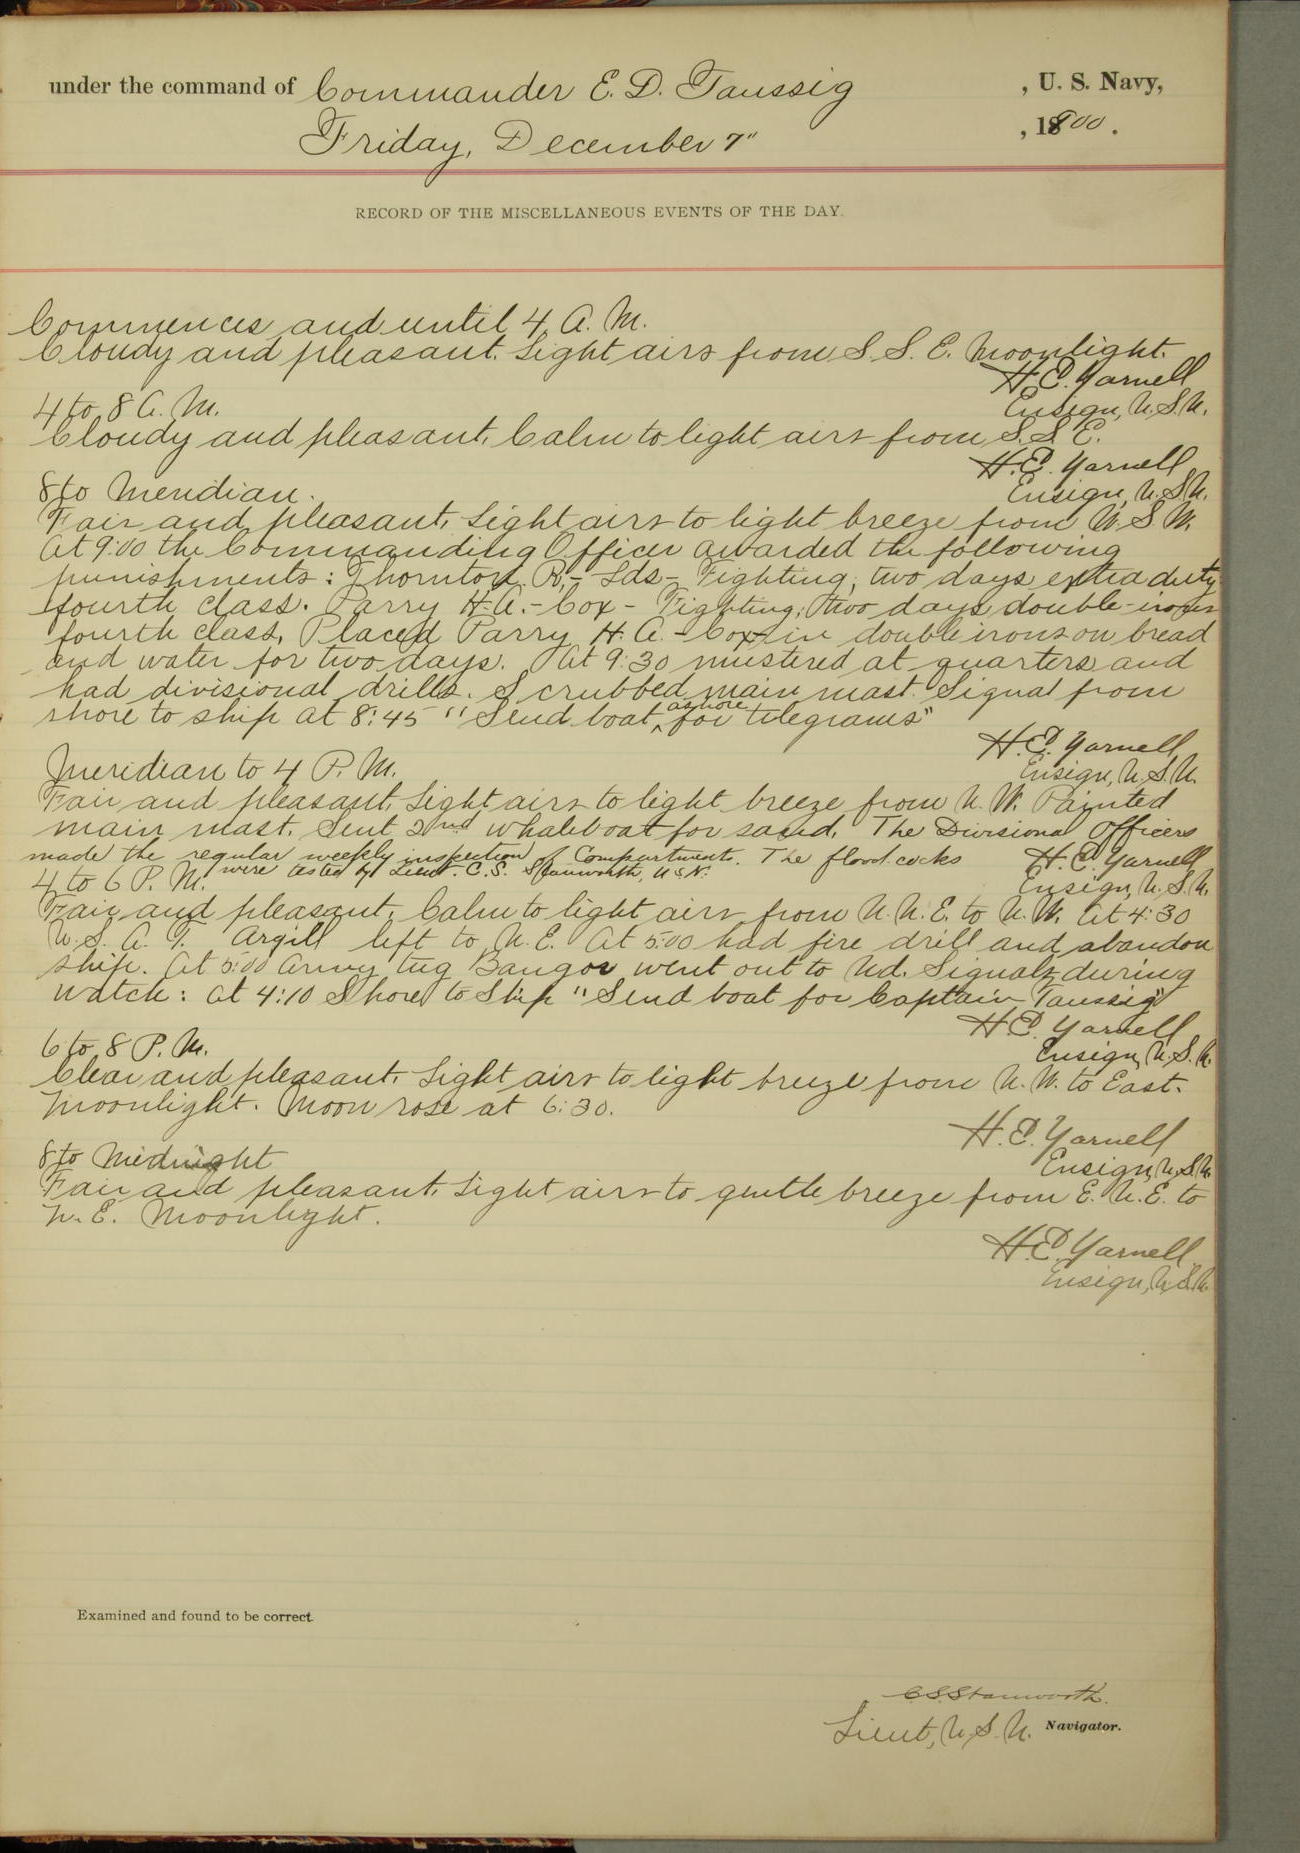 under the command of Commander E. D. Taussig , U. S. Navy,
Friday, December 7" , 1900.
RECORD OF THE MISCELLANEOUS EVENTS OF THE DAY.
Commences and until 4 A. M.
Cloudy and pleasant. Light airs from S. S. E. Moonlight.
H. E. Yarnell
Ensign, U.S.N.
4 to 8 A. M.
Cloudy and pleasant. Calm to light airs from S. S. E.
H. E. Yarnell
Ensign, U.S.N.
8 to Meridian.
Fair and pleasant. Light airs to light breeze from W. S. W.
At 9:00 the Commanding Officer awarded the following
punishments: Thornton, R. - Lds - Fighting, two days extra duty
fourth class. Parry H. A. - Cox - Fighting; two days double-irons
fourth class. Placed Parry H. A. - Cox - in double irons on bread
and water for two days. At 9:30 mustered at quarters and
had divisional drills. Scrubbed main mast. Signal from
shore to ship at 8:45 "Send boat ^ashore for telegrams"
H. E. Yarnell
Ensign, U.S.N.
Meridian to 4 P. M.
Fair and pleasant. Light airs to light breeze from N. W. Painted
main mast. Sent 2nd whaleboat for sand. The Divisional Officers
made the regular weekly inspection of Compartments. The flood cocks
were tested by Lieut. C. S. Stanworth, U.S.N.
H. E. Yarnell
Ensign, U.S.N.
4 to 6 P. M.
Fair and pleasant. Calm to light airs from N. N. E. to N. W. At 4:30
U. S. A. T. Argill left to N. E. At 5:00 had fire drill and abandon
ship. At 5:00 Army tug Bangor went out to Nd. Signals during
watch: At 4:10 Shore to Ship "Send boat for Captain Taussig"
H. E. Yarnell
Ensign, U.S.N.
6 to 8 P. M.
Clear and pleasant. Light airs to light breeze from N. W. to East.
Moonlight. Moon rose at 6:30.
H. E. Yarnell
Ensign, U.S.N.
8 to Midnight
Fair and pleasant. Light airs to gentle breeze from E. N. E. to
N. E. Moonlight.
H. E. Yarnell
Ensign, U.S.N.
Examined and found to be correct.
C. S. Stanworth.
Lieut, U. S. N. Navigator.